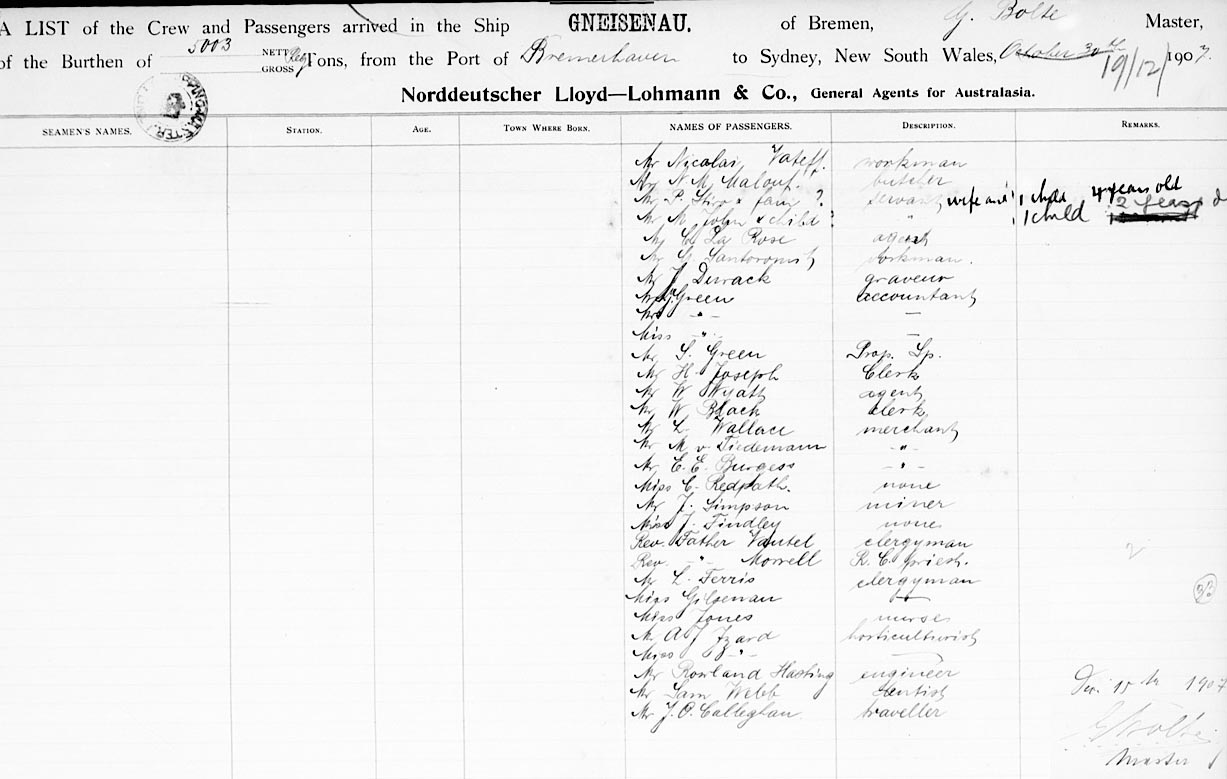 A LIST of the Crew and Passengers arrived in the Ship GNEISENAU. of Bremen, G. Bolte Master,
of the Burthen of 5003 NETT GROSS Reg Tons, from the Port of Bremerhaven to Sydney, New South Wales, October 30th 19/12/1907.
Norddeutscher Lloyd—Lohmann & Co., General Agents for Australasia.
SEAMEN'S NAMES. STATION. AGE. TOWN WHERE BORN. NAMES OF PASSENGERS. DESCRIPTION. REMARKS.
Mr Nicolai Vateff. workman
Mr N. M. Malouf. butcher
Mr P. & fam ? servant, wife and 1 child 4 years old
Mr M. John & child ? " 1 child 2 years
Mr C. La Rose agent
Mr G. workman.
Mr J. Durack graveur
Mr J. Green accountant
Mrs -"- —
Miss -"- —
Mr S. Green Prop. Sp.
Mr H. Joseph Clerk
Mr W. Wyatt agent
Mr W. Black clerk
Mr L. Wallace merchant
Mr M. v. Tiedemann -"-
Mr E. E. Burgess -"-
Miss C. Redpath. none
Mr J. Simpson miner
Miss J. Findley none
Rev. Father Vautel clergyman
Rev. -"- Morrell R. C. Priest.
Mr L. Ferris clergyman
Miss Gilsenan
Miss Jones nurse
Mr A. J. Izard horticulturist
Miss -"- —
Mr Rowland Hasting engineer
Mr Sam Webb dentist
Mr J. O. Calleghan. traveller
Dec. 1907
G Bolte
Master